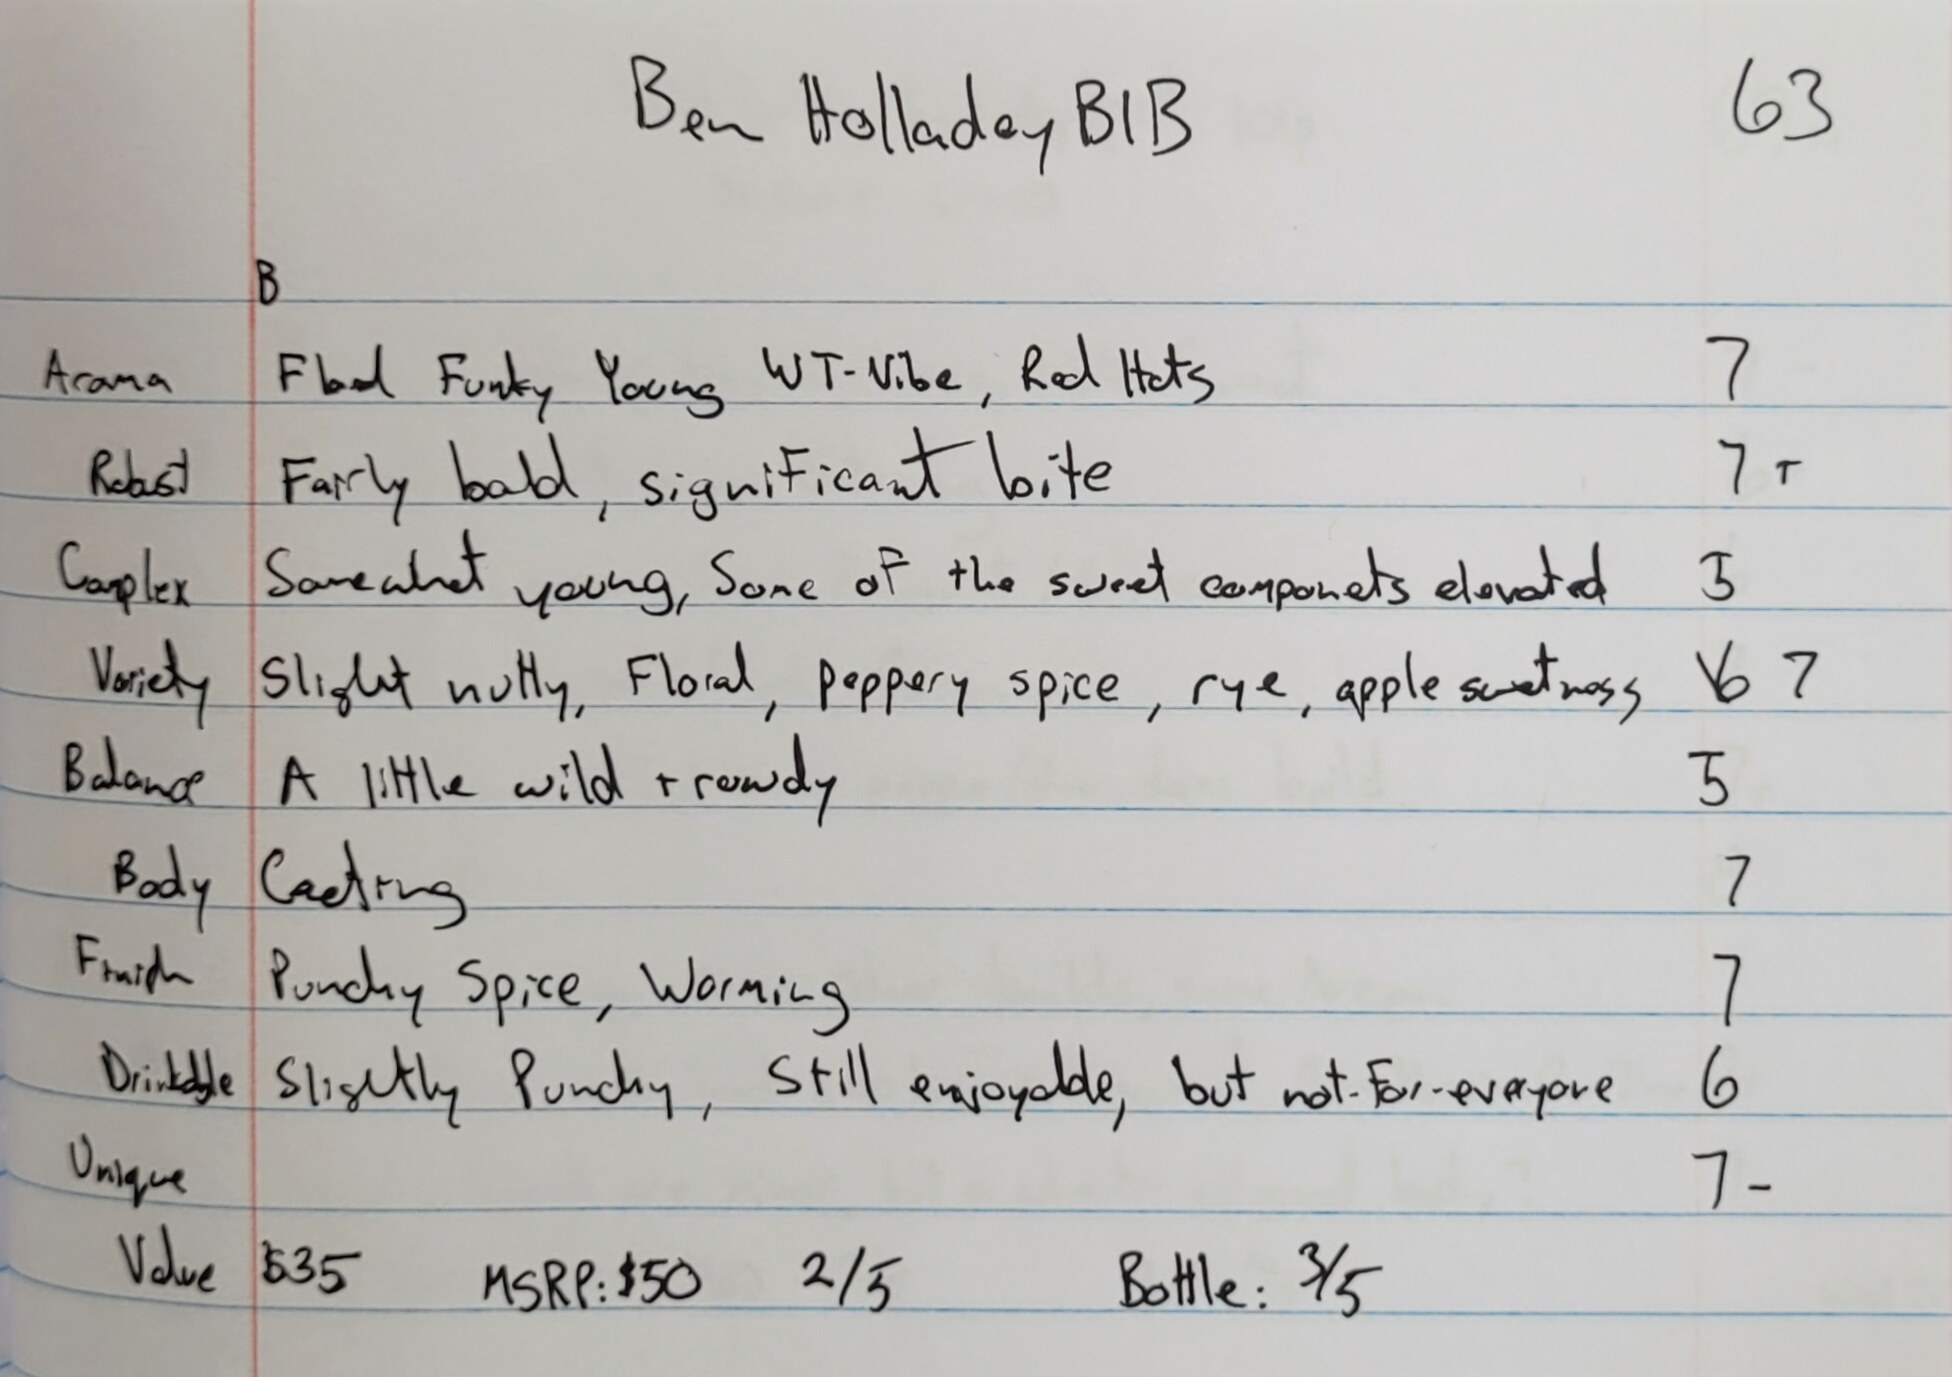 Ben Holladay BIB 63
B
Aroma Floral Funky Young WT-Vibe, Red Hots 7
Robust Fairly bold, significant bite 7+
Complex Somewhat young, Some of the sweet componets elevated 5
Variety Slight nutty, Floral, peppery spice, rye, apple sweetness 6 7
Balance A little wild + rowdy 5
Body Coating 7
Finish Punchy Spice, Warming 7
Drinkable Slightly Punchy, Still enjoyable, but not-For-everyone 6
Unique 7-
Value $35 MSRP: $50 2/5 Bottle: 3/5